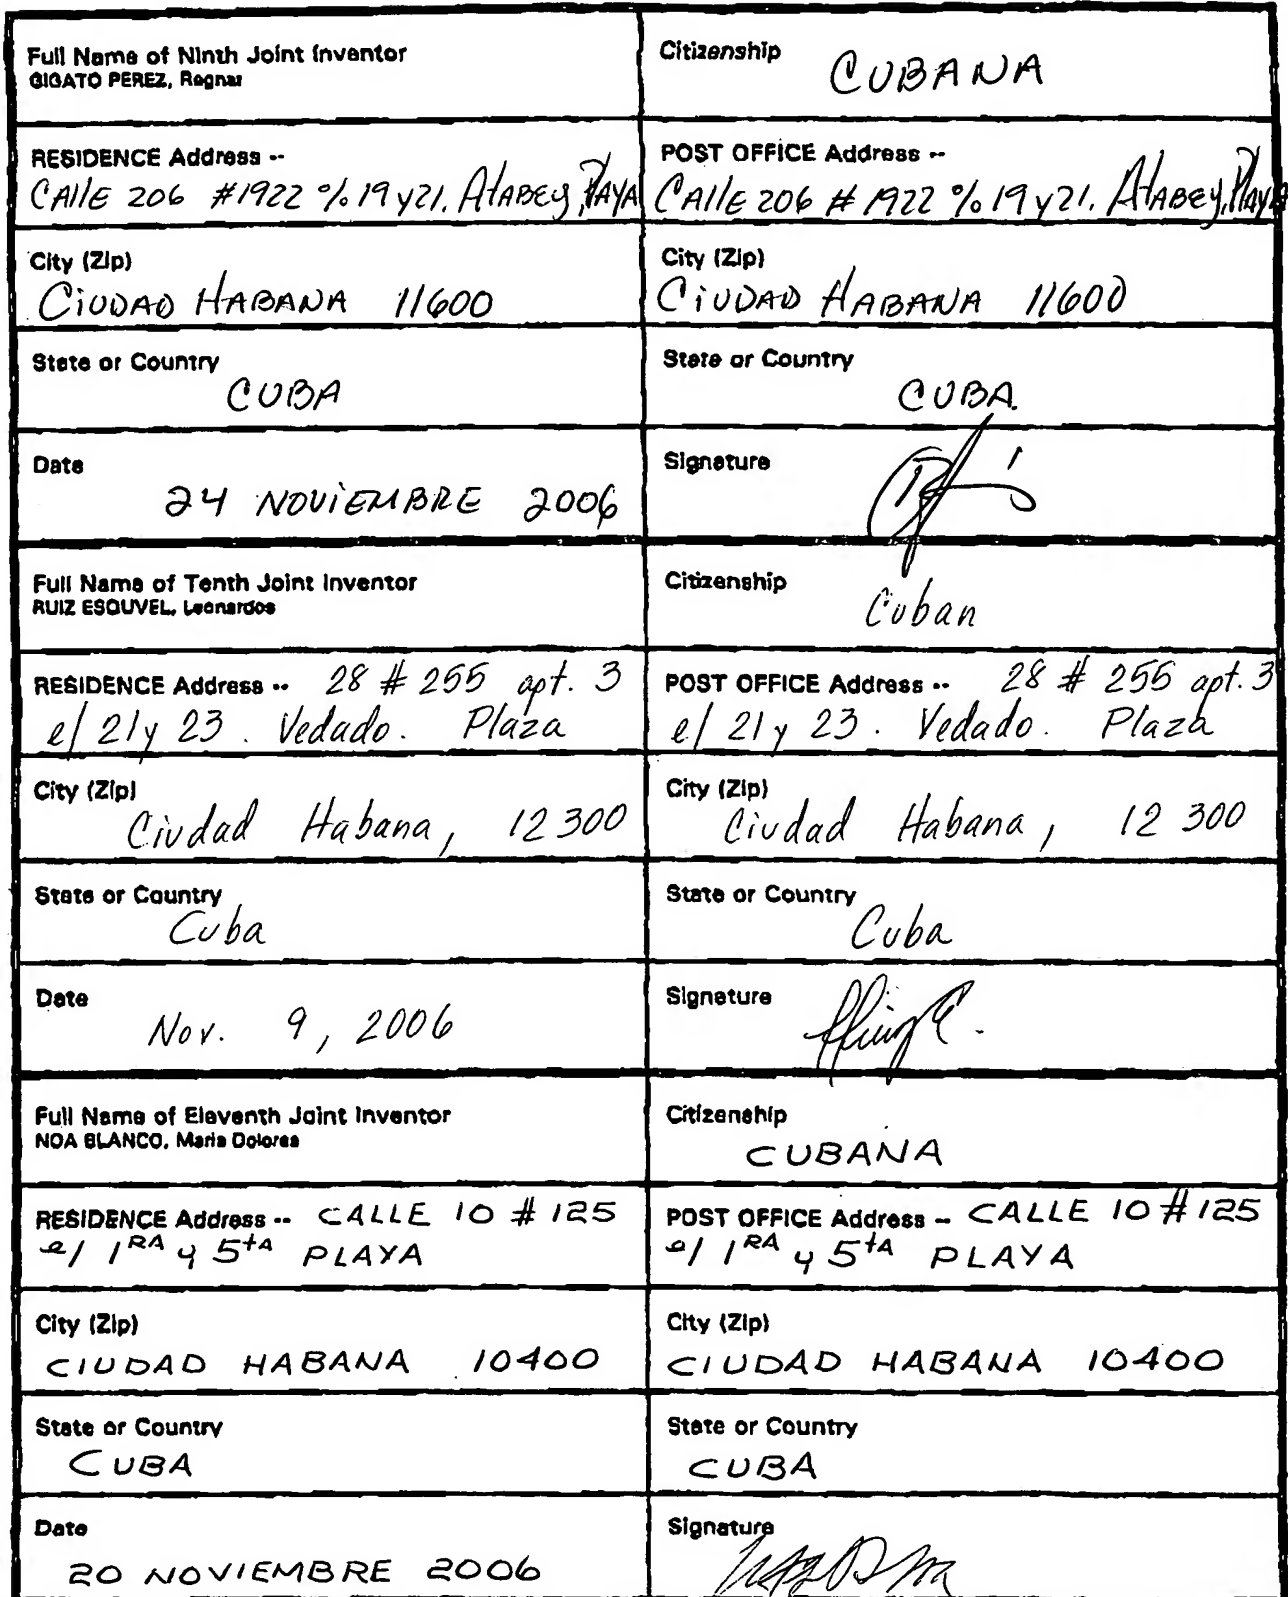 Full Name of Ninth Joint Inventor
GIGATO PEREZ, Ragnar
Citizenship
CUBANA
RESIDENCE Address --
CAllE 206 #1922 % 19 y 21. AtABEy, PlAYA
POST OFFICE Address --
CAllE 206 # 1922 % 19 y 21. AtABEy, PlAyA
City (Zip)
CiUDAD HABANA 11600
City (Zip)
CiUDAD HABANA 11600
State or Country
CUBA
State or Country
CUBA.
Date
24 NOViEMBRE 2006
Signature
Full Name of Tenth Joint Inventor
RUIZ ESQUVEL, Leonardos
Citizenship
Cuban
RESIDENCE Address -- 28 # 255 apt. 3
e/ 21 y 23. Vedado. Plaza
POST OFFICE Address -- 28 # 255 apt. 3
e/ 21 y 23. Vedado. Plaza
City (Zip)
Ciudad Habana, 12 300
City (Zip)
Ciudad Habana, 12 300
State or Country
Cuba
State or Country
Cuba
Date
Nov. 9, 2006
Signature
Full Name of Eleventh Joint Inventor
NOA BLANCO, Maria Dolores
Citizenship
CUBANA
RESIDENCE Address -- CALLE 10 # 125
e/ 1RA y 5tA PLAYA
POST OFFICE Address -- CALLE 10 # 125
e/ 1RA y 5tA PLAYA
City (Zip)
CIUDAD HABANA 10400
City (Zip)
CIUDAD HABANA 10400
State or Country
CUBA
State or Country
CUBA
Date
20 NOVIEMBRE 2006
Signature